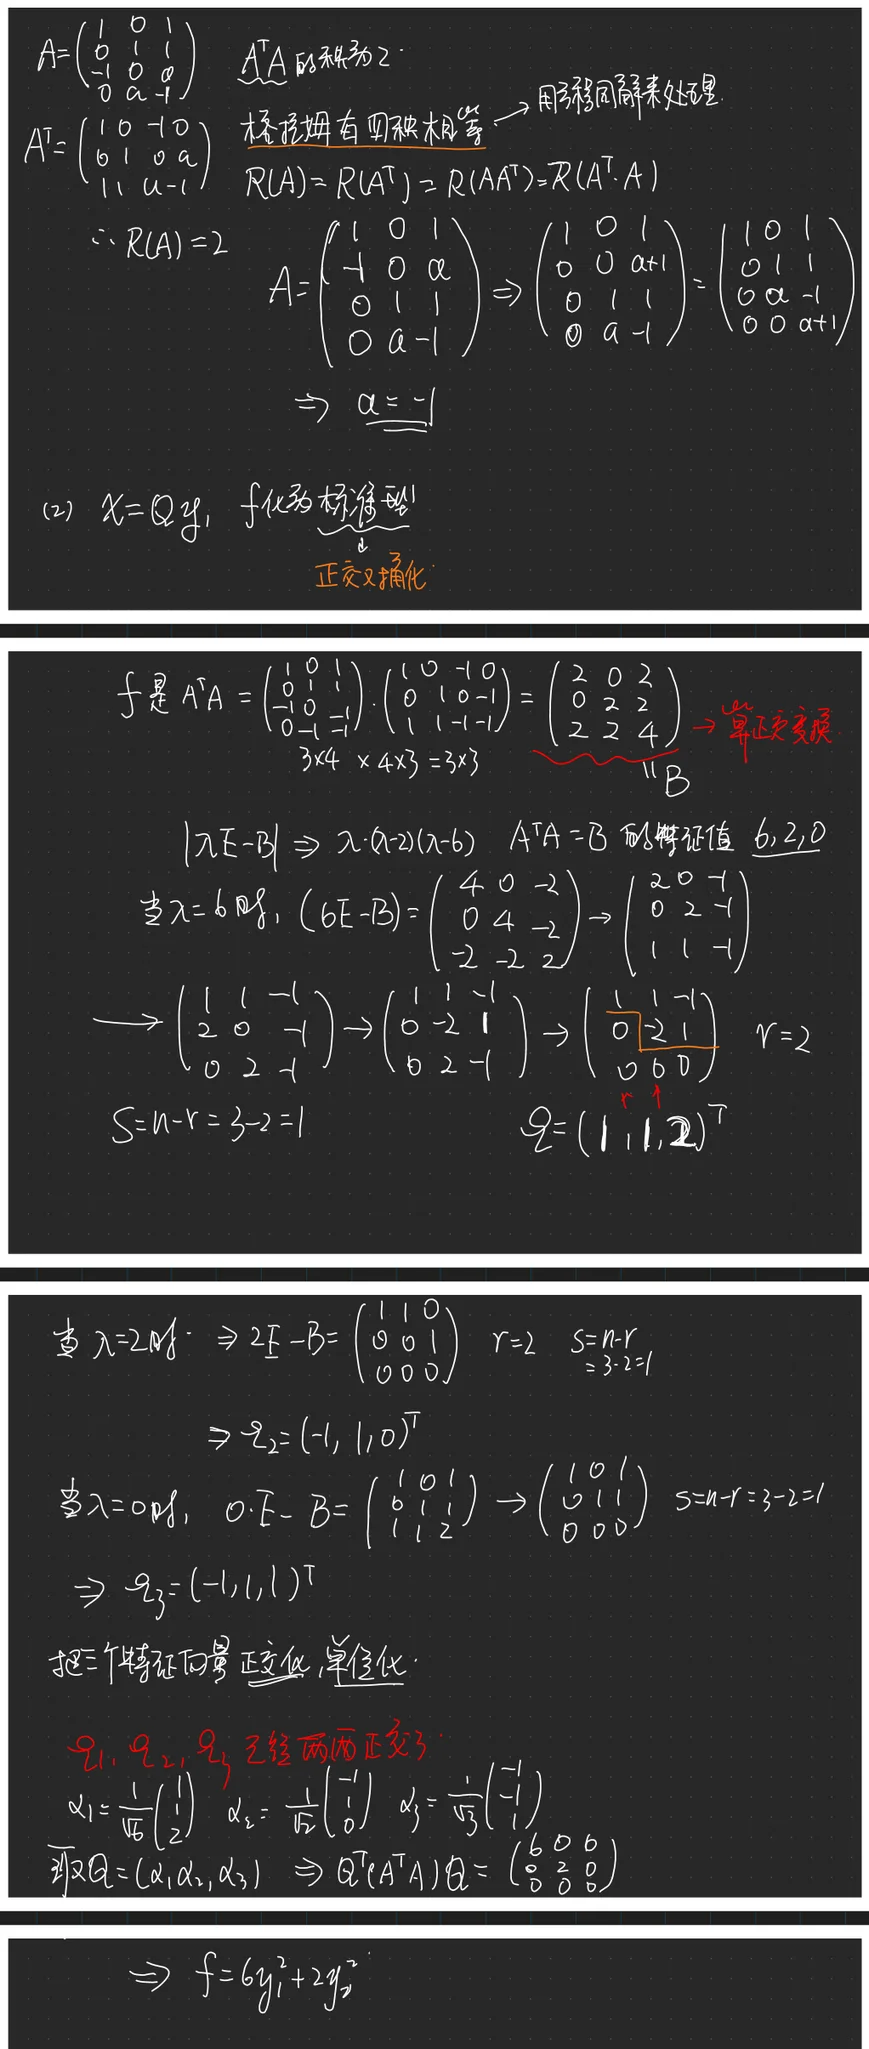 A = ( 1 0 1 ; 0 1 1 ; -1 0 a ; 0 a -1 ) A^T A 的秩为2.
A^T = ( 1 0 -1 0 ; 0 1 0 a ; 1 1 a -1 ) 格拉姆有四秩相等 → 用方程同解来处理
R(A) = R(A^T) = R(AA^T) = R(A^T·A)
∴ R(A) = 2
A = ( 1 0 1 ; -1 0 a ; 0 1 1 ; 0 a -1 ) ⇒ ( 1 0 1 ; 0 0 a+1 ; 0 1 1 ; 0 a -1 ) = ( 1 0 1 ; 0 1 1 ; 0 a -1 ; 0 0 a+1 )
⇒ a = -1
(2) x = Qy, f化为标准型
↓
正交对角化
f是 A^T A = ( 1 0 1 ; 0 1 1 ; -1 0 -1 ; 0 -1 -1 ) · ( 1 0 -1 0 ; 0 1 0 -1 ; 1 1 -1 -1 ) = ( 2 0 2 ; 0 2 2 ; 2 2 4 ) → 算正交变换
3×4 × 4×3 = 3×3
" B
|λE-B| ⇒ λ·(λ-2)(λ-6) A^T A = B 的特征值 6, 2, 0
当λ=6时, (6E-B) = ( 4 0 -2 ; 0 4 -2 ; -2 -2 2 ) → ( 2 0 -1 ; 0 2 -1 ; 1 1 -1 )
→ ( 1 1 -1 ; 2 0 -1 ; 0 2 -1 ) → ( 1 1 -1 ; 0 -2 1 ; 0 2 -1 ) → ( 1 1 -1 ; 0 -2 1 ; 0 0 0 ) r=2
S = n-r = 3-2 = 1 ξ = (1, 1, 2)^T
当λ=2时 ⇒ 2E-B = ( 1 1 0 ; 0 0 1 ; 0 0 0 ) r=2 s=n-r
=3-2=1
⇒ ξ2 = (-1, 1, 0)^T
当λ=0时, 0·E-B = ( 1 0 1 ; 0 1 1 ; 1 1 2 ) → ( 1 0 1 ; 0 1 1 ; 0 0 0 ) s=n-r=3-2=1
⇒ ξ3 = (-1, 1, 1)^T
把三个特征向量正交化,单位化.
ξ1, ξ2, ξ3 已经两两正交了.
α1 = 1/√6 ( 1 ; 1 ; 2 ) α2 = 1/√2 ( -1 ; 1 ; 0 ) α3 = 1/√3 ( -1 ; -1 ; 1 )
取Q = (α1 α2, α3) ⇒ Q^T(A^T A)Q = ( 6 0 0 ; 0 2 0 ; 0 0 0 )
⇒ f = 6y1^2 + 2y2^2